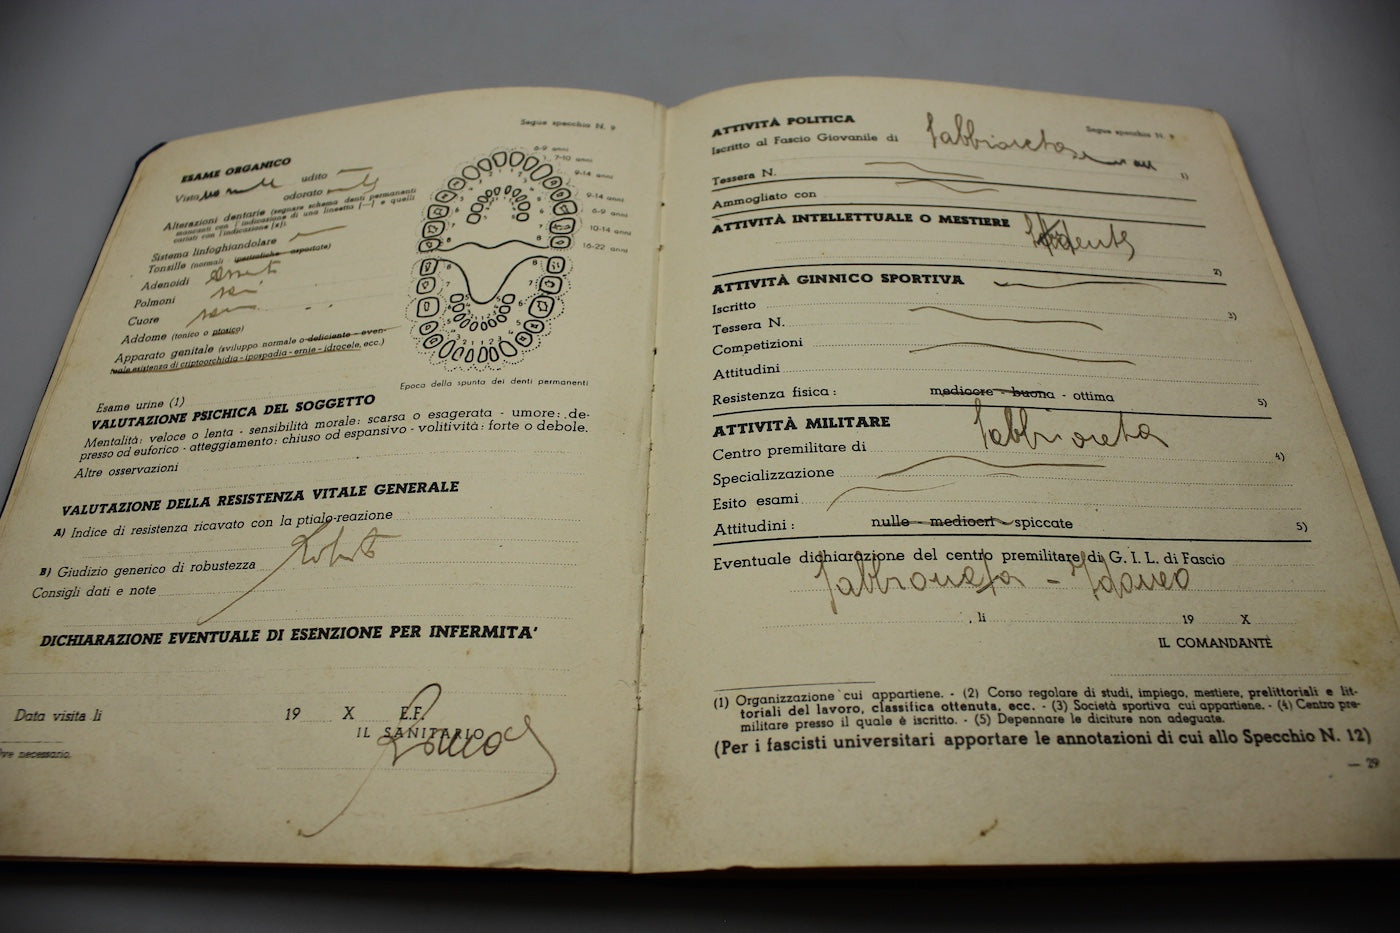 Segue specchio N. 9
ESAME ORGANICO
Vista udito
odorato
Alterazioni dentarie (segnare schema denti permanenti
mancanti con l'indicazione di una lineetta [—] e quelli
cariati con l'indicazione [x]).
Sistema linfoghiandolare
Tonsille (normali ipertrofiche asportate)
Adenoidi assenti
Polmoni sani
Cuore sano
Addome (tonico o ptosico)
Apparato genitale (sviluppo normale o deficiente - even-
tuale esistenza di criptoorchidia - ipospadia - ernie - idrocele, ecc.)
6-9 anni
7-10 anni
9-14 anni
9-14 anni
6-9 anni
10-14 anni
16-22 anni
Epoca della spunta dei denti permanenti
Esame urine (1)
VALUTAZIONE PSICHICA DEL SOGGETTO
Mentalità: veloce o lenta - sensibilità morale: scarsa o esagerata - umore: de-
presso od euforico - atteggiamento: chiuso od espansivo - volitività: forte o debole.
Altre osservazioni
VALUTAZIONE DELLA RESISTENZA VITALE GENERALE
A) Indice di resistenza ricavato con la ptialo-reazione
B) Giudizio generico di robustezza Robusto
Consigli dati e note
DICHIARAZIONE EVENTUALE DI ESENZIONE PER INFERMITA'
Data visita li 19 X E.F.
IL SANITARIO
necessario.
Segue specchio N. 9
ATTIVITÀ POLITICA
Iscritto al Fascio Giovanile di Sabbioneta 1)
Tessera N.
Ammogliato con
ATTIVITÀ INTELLETTUALE O MESTIERE
2)
ATTIVITÀ GINNICO SPORTIVA
Iscritto 3)
Tessera N.
Competizioni
Attitudini
Resistenza fisica: mediocre - buona - ottima 5)
ATTIVITÀ MILITARE
Centro premilitare di Sabbioneta 4)
Specializzazione
Esito esami
Attitudini: nulle - mediocri - spiccate 5)
Eventuale dichiarazione del centro premilitare di G. I. L. di Fascio
Sabbioneta - Idoneo
, li 19 X
IL COMANDANTE
(1) Organizzazione cui appartiene. - (2) Corso regolare di studi, impiego, mestiere, prelittoriali e lit-
toriali del lavoro, classifica ottenuta, ecc. - (3) Società sportiva cui appartiene. - (4) Centro pre-
militare presso il quale è iscritto. - (5) Depennare le diciture non adeguate.
(Per i fascisti universitari apportare le annotazioni di cui allo Specchio N. 12)
— 29